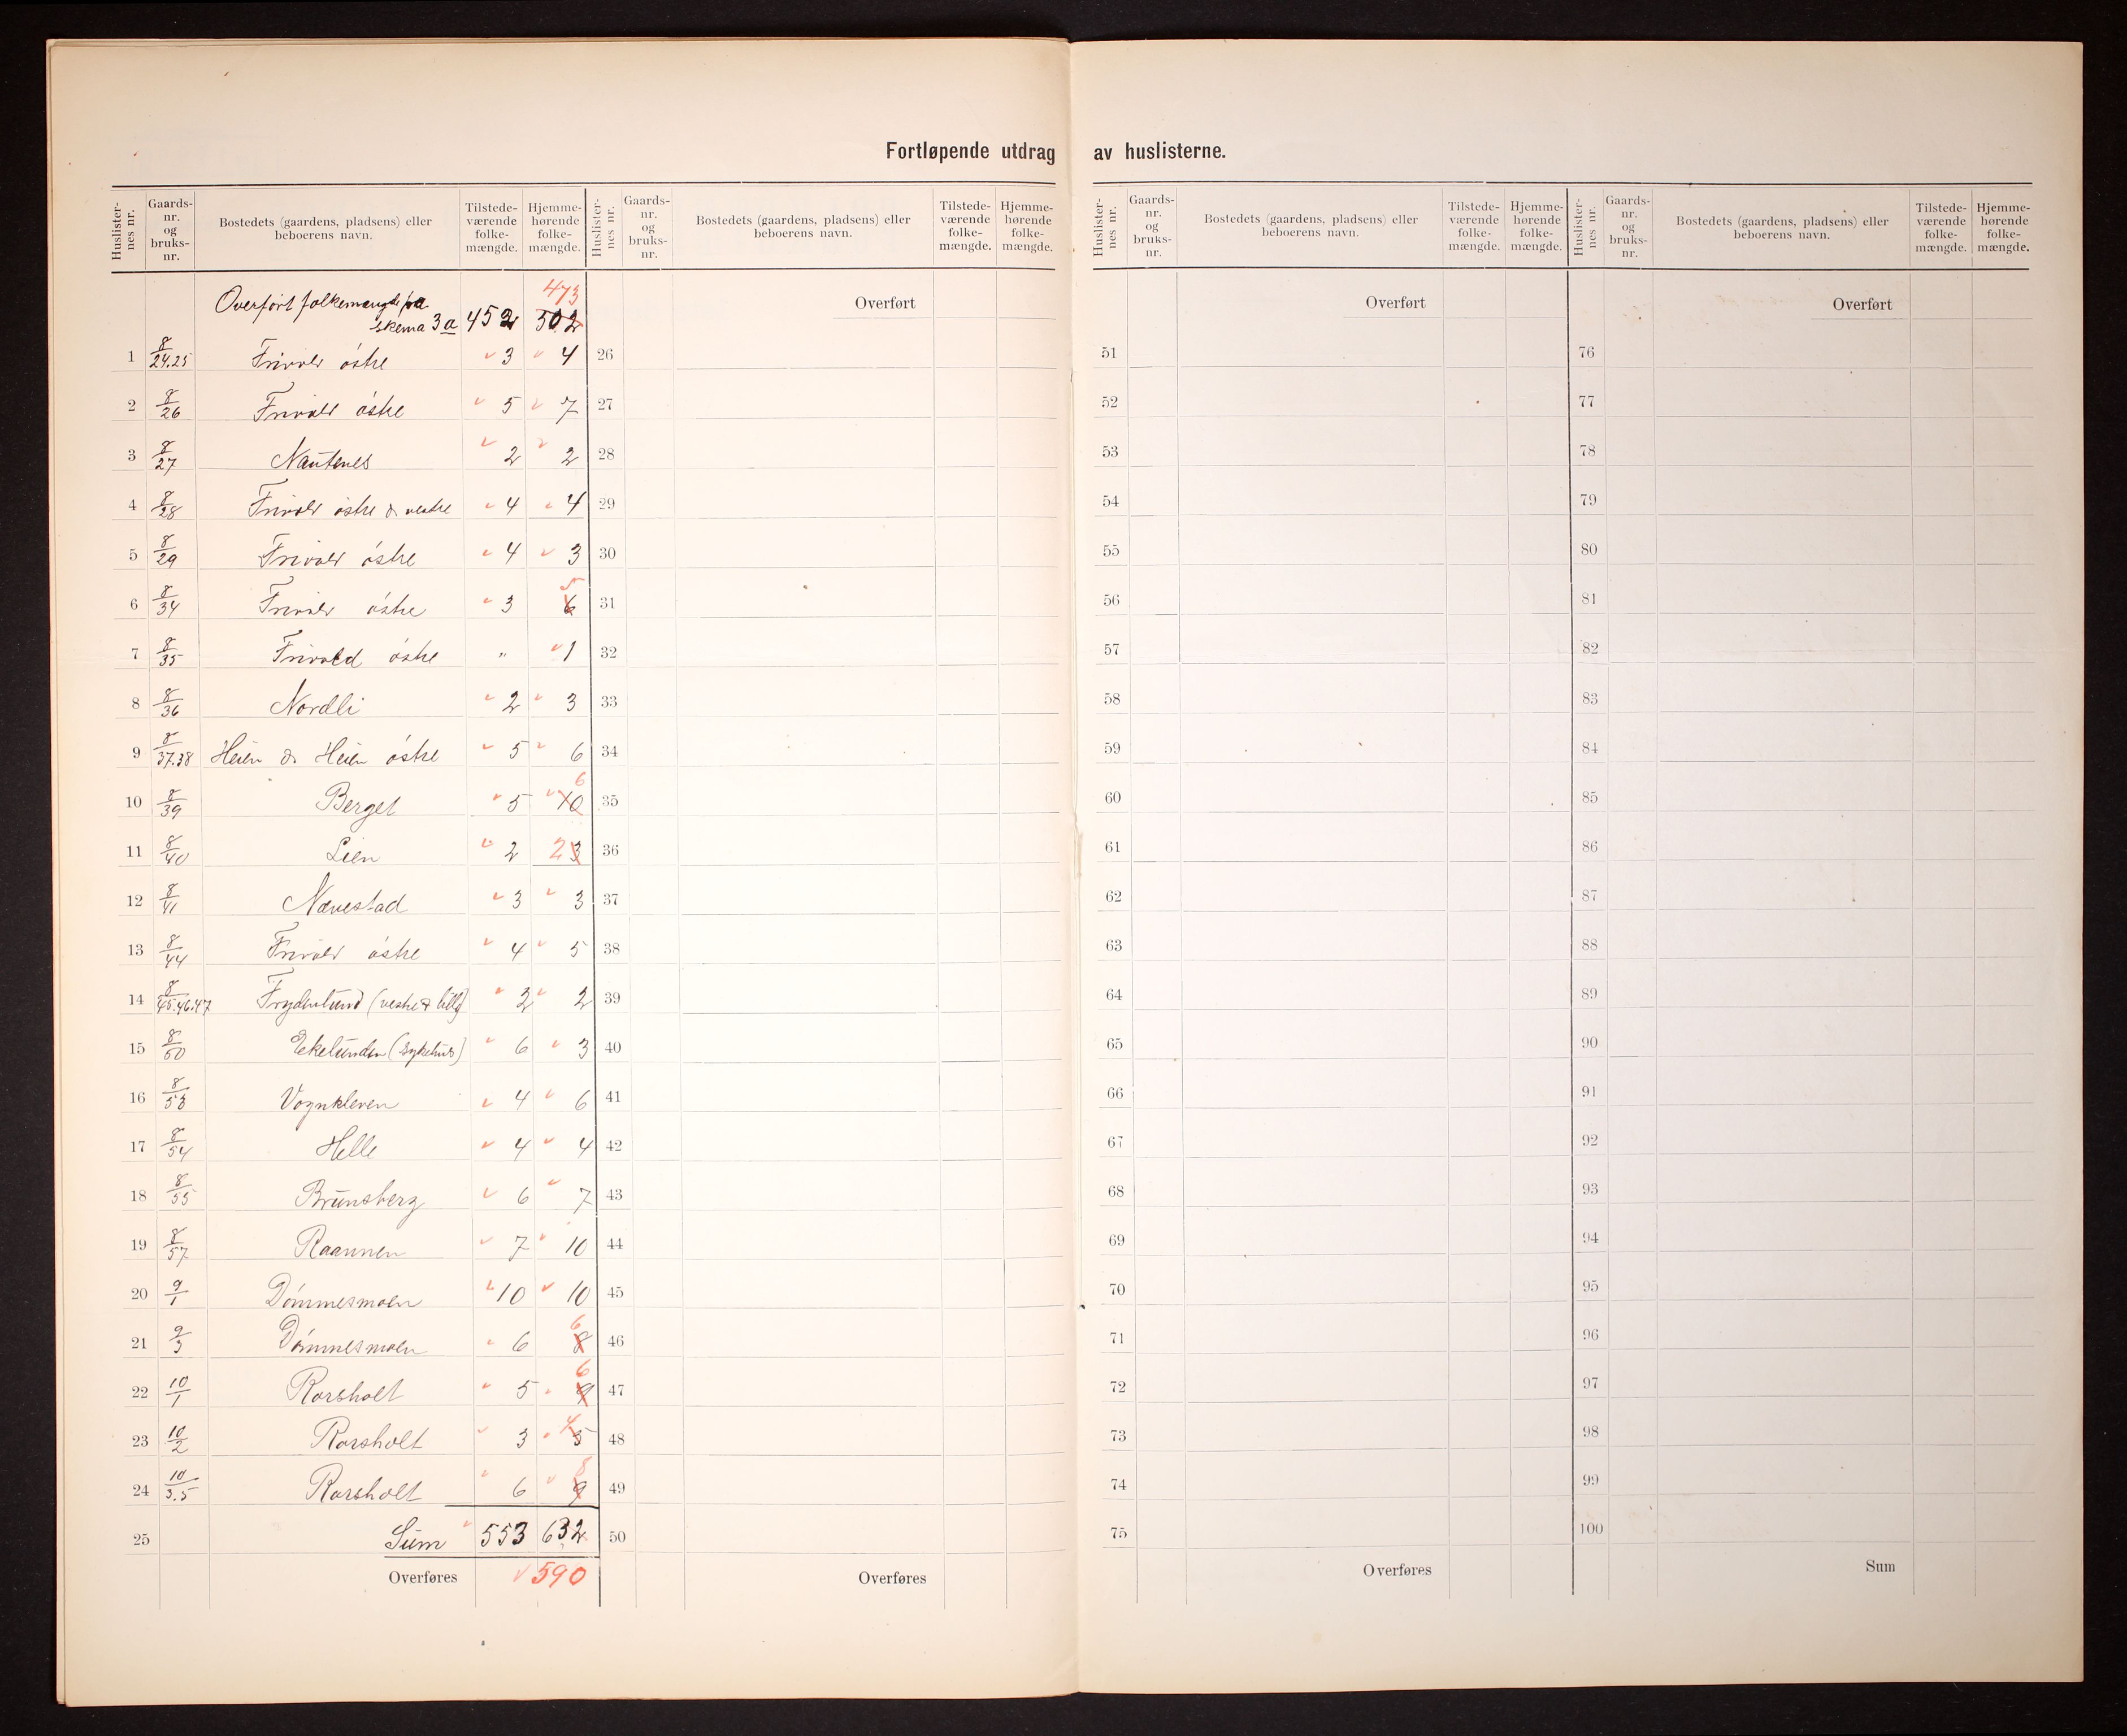 Fortløpende utdrag av huslisterne.
Huslister-nes nr. Gaards-nr. og bruks-nr. Bostedets (gaardens, pladsens) eller beboerens navn. Tilstede-værende folke-mængde. Hjemme-hørende folke-mængde.
Huslister-nes nr. Gaards-nr. og bruks-nr. Bostedets (gaardens, pladsens) eller beboerens navn. Tilstede-værende folke-mængde. Hjemme-hørende folke-mængde.
Huslister-nes nr. Gaards-nr. og bruks-nr. Bostedets (gaardens, pladsens) eller beboerens navn. Tilstede-værende folke-mængde. Hjemme-hørende folke-mængde.
Huslister-nes nr. Gaards-nr. og bruks-nr. Bostedets (gaardens, pladsens) eller beboerens navn. Tilstede-værende folke-mængde. Hjemme-hørende folke-mængde.
473
Overført folkemængde fra
skema 3a 452 502
1 8/24.25 Frivold østre 3 4
2 8/26 Frivold østre 5 7
3 8/27 Nautenes 2 2
4 8/28 Frivold østre & vestre 4 4
5 8/29 Frivold østre 4 3
6 8/34 Frivold østre 3 6 5
7 8/35 Frivold østre " 1
8 8/36 Nordli 2 3
9 8/37.38 Heien & Heien østre 5 6
10 8/39 Berget 5 10 6
11 8/40 Lien 2 2 3
12 8/41 Nævestad 3 3
13 8/44 Frivold østre 4 5
14 8/45.46.47 Frydenlund (vestre & lille) 2 2
15 8/50 Ekelunden (sykehus) 6 3
16 8/53 Vognkleven 4 6
17 8/54 Helle 4 4
18 8/55 Brunsberg 6 7
19 8/57 Raannen 7 10
20 9/1 Dømmesmoen 10 10
21 9/3 Dømmesmoen 6 8 6
22 10/1 Rorsholt 5 9 6
23 10/2 Rorsholt 3 5 4
24 10/3.5 Rorsholt 6 9 8
25 Sum 553 632
Overføres 590
Overført
26
27
28
29
30
31
32
33
34
35
36
37
38
39
40
41
42
43
44
45
46
47
48
49
50
Overføres
Overført
51
52
53
54
55
56
57
58
59
60
61
62
63
64
65
66
67
68
69
70
71
72
73
74
75
Overføres
Overført
76
77
78
79
80
81
82
83
84
85
86
87
88
89
90
91
92
93
94
95
96
97
98
99
100
Sum